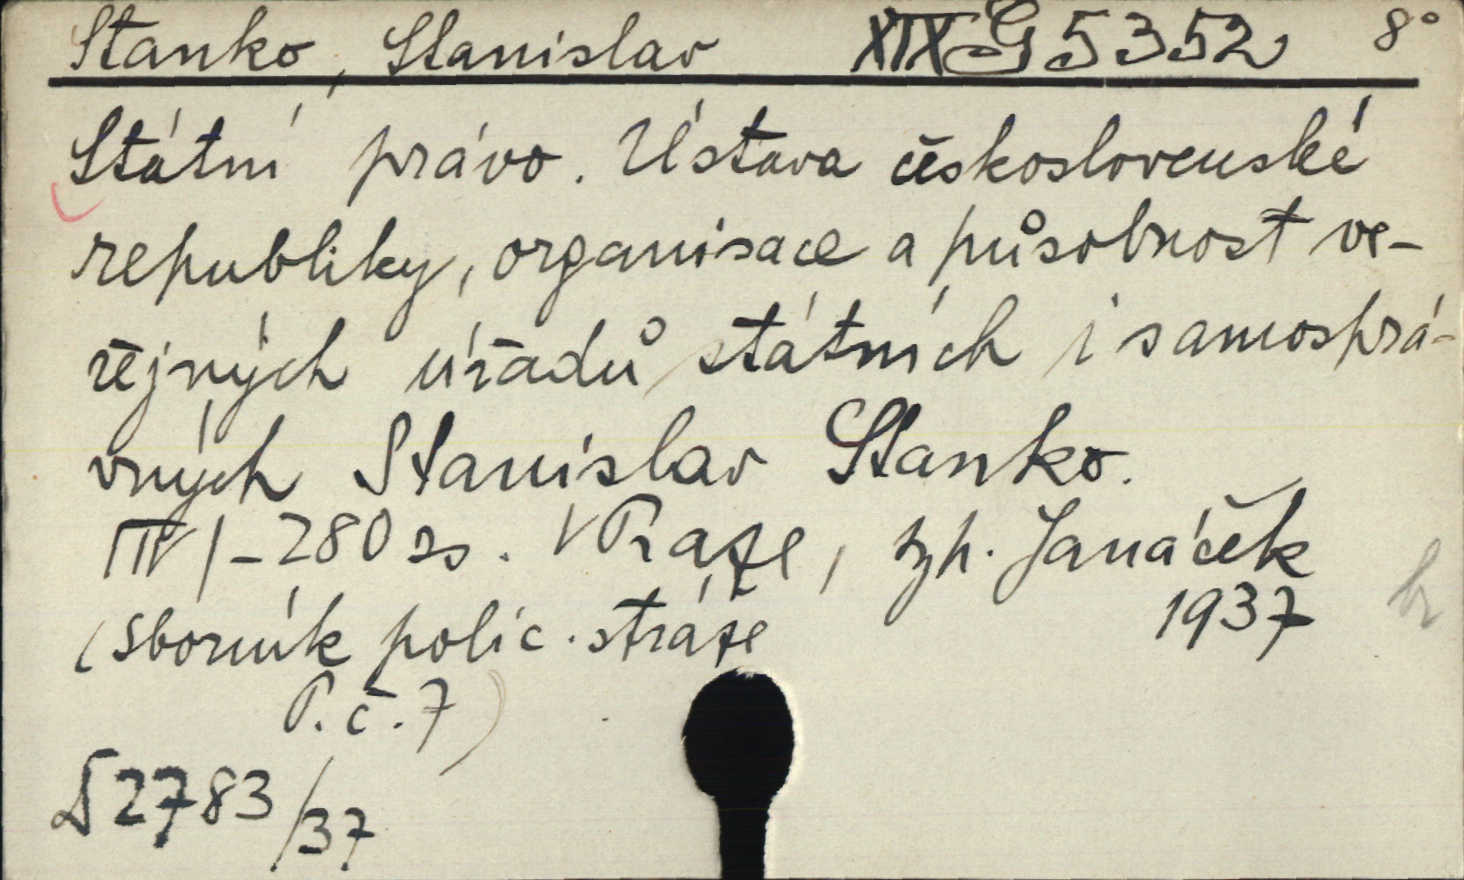 Stanko, Stanislav XIX G 5352 8°
Státní právo. Ústava československé
republiky, organisace a působnost ve-
řejných úřadů státních i samosprá-
vných Stanislav Stanko.
- 280 s. V Praze, Janáček
1937
(Sborník polic. stráže
P. č. 7)
2783/37